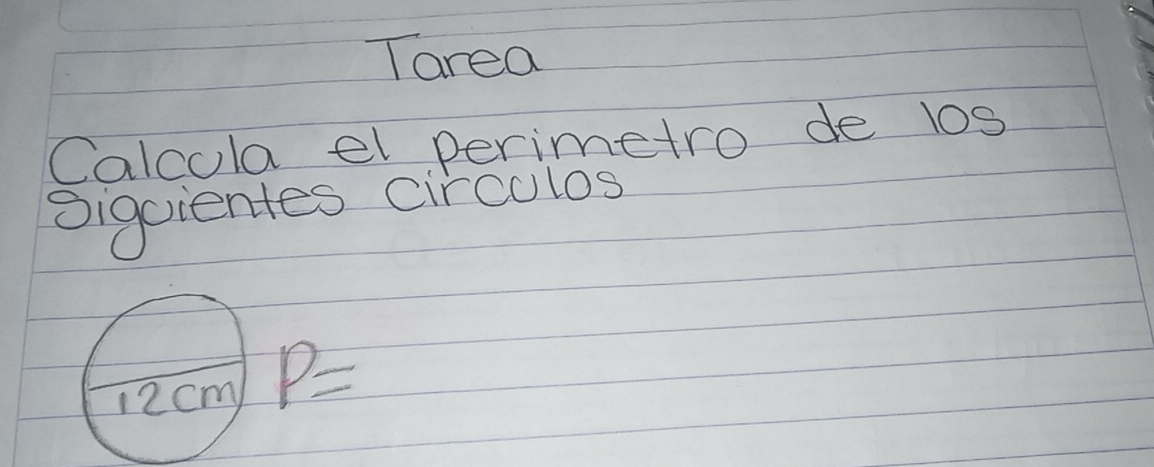 Tarea
Calcula el perimetro de los
siguientes circulos
12cm P=